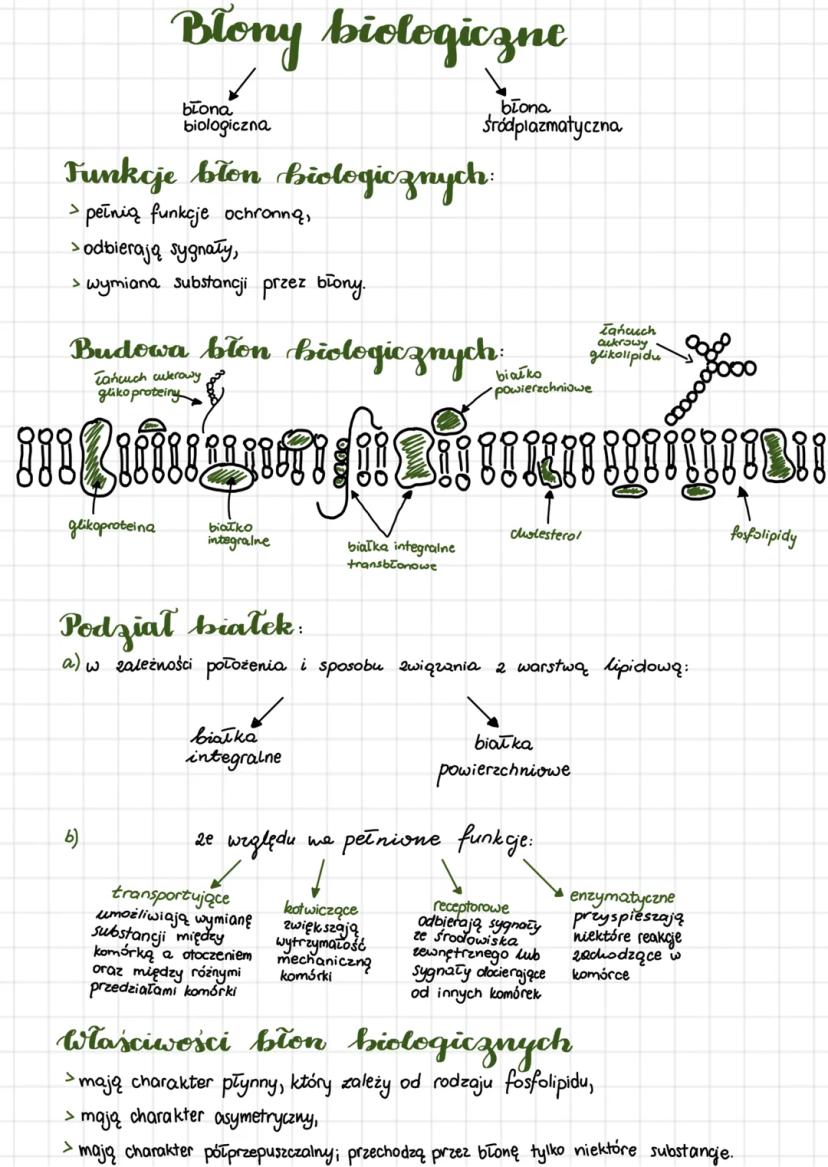 Błony biologiczne
błona
biologiczna
błona
śródplazmatyczna
Funkcje błon biologicznych:
> pełnią funkcje ochronną,
> odbierają sygnały,
> wymiana substancji przez błony.
Budowa błon biologicznych:
łańcuch cukrowy
glikoproteiny
białko
powierzchniowe
łańcuch
cukrowy
glikolipidu
glikoproteina
białko
integralne
białka integralne
transbłonowe
cholesterol
fosfolipidy
Podział białek:
a) w zależności położenia i sposobu związania z warstwą lipidową:
białka
integralne
białka
powierzchniowe
b) ze względu na pełnione funkcje:
transportujące
umożliwiają wymianę
substancji między
komórką a otoczeniem
oraz między różnymi
przedziałami komórki
kotwiczące
zwiększają
wytrzymałość
mechaniczną
komórki
receptorowe
odbierają sygnały
ze środowiska
zewnętrznego lub
sygnały docierające
od innych komórek
enzymatyczne
przyspieszają
niektóre reakcje
zachodzące w
komórce
Właściwości błon biologicznych
> mają charakter płynny, który zależy od rodzaju fosfolipidu,
> mają charakter asymetryczny,
> mają charakter półprzepuszczalny; przechodzą przez błonę tylko niektóre substancje.